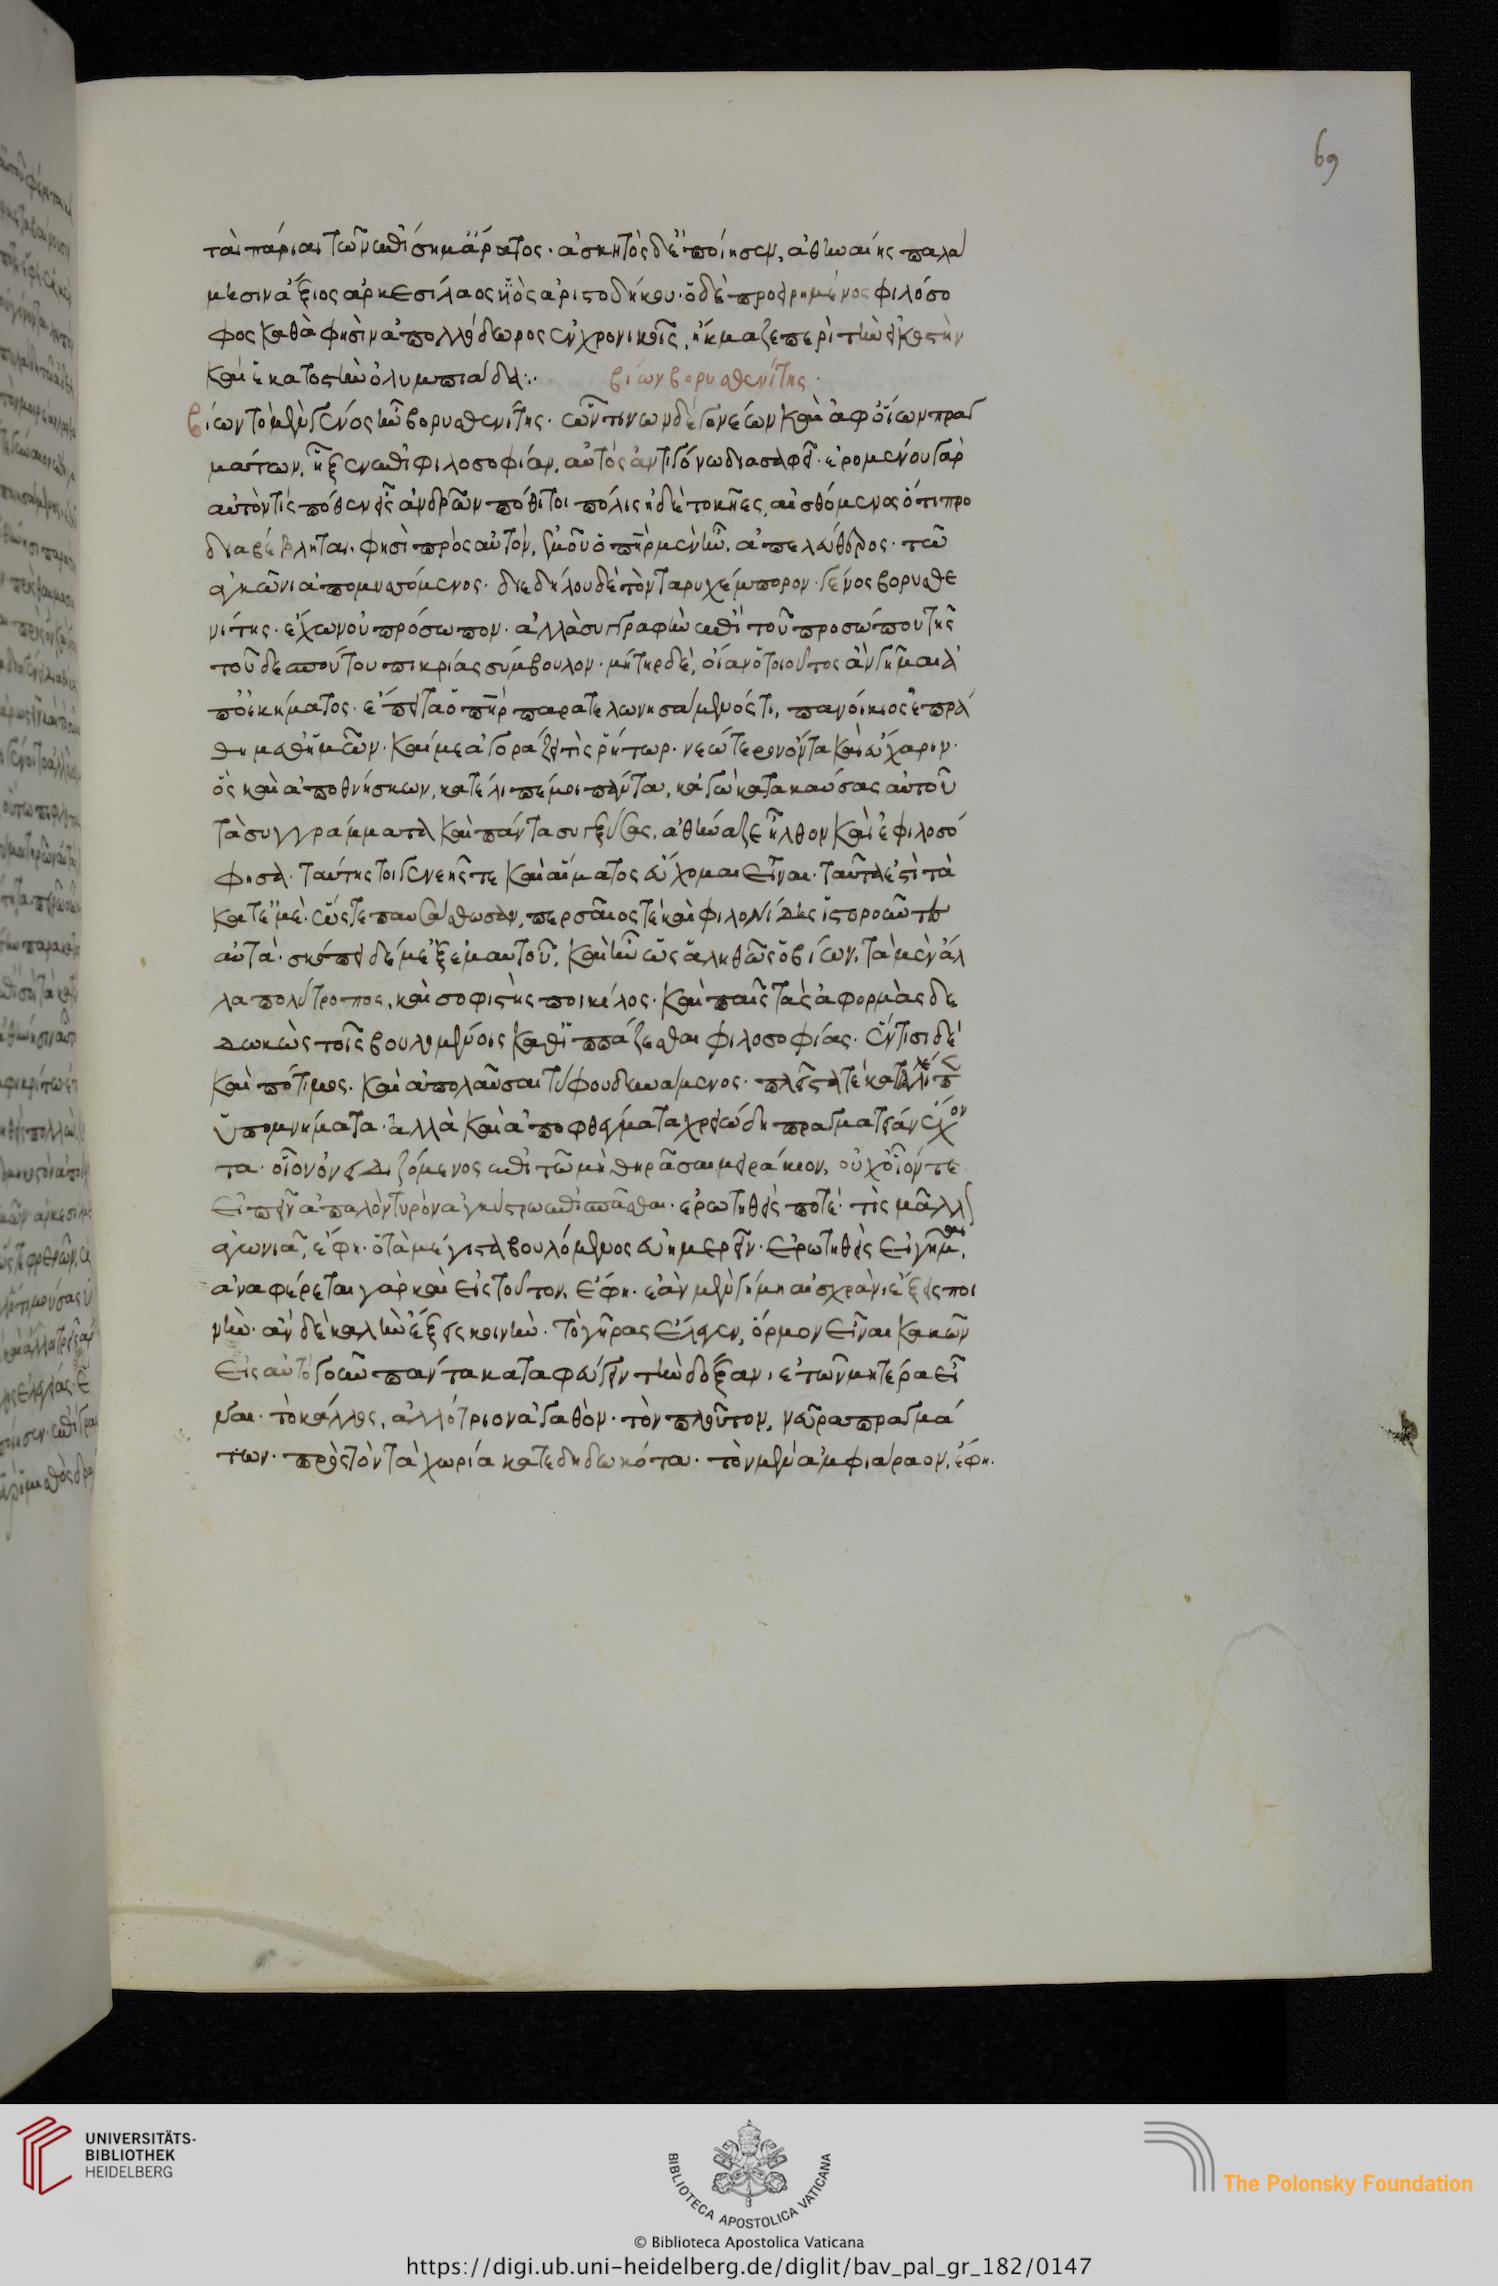 69
ται πάριαι τῶν ἐπίσημ' ἄρατος· ἀσκητὸς δ' ἐποίησεν, ἀθηναίης παλά
μεσιν ἄξιος ἀρκεσίλαος υἱὸς ἀριστοδήκου· ὁ δὲ προειρημένος φιλόσο
φος καθά φησιν ἀπολλόδωρος ἐν χρονικοῖς, ἤκμαζε περὶ τὴν εἰκοστὴν
καὶ ἑκατοστὴν ὀλυμπιάδα:·
βίων βορυσθενίτης·
βίων τὸ μὲν γένος ἦν βορυσθενίτης· ὧν τινων δὲ γονέων καὶ ἀφ' οἵων πραγ
μάτων, ἧξεν ἐπὶ φιλοσοφίαν, αὐτὸς ἀντιγόνω διασαφεῖ· ἐρομένου γὰρ
αὐτὸν τίς πόθεν εἶς ἀνδρῶν πόθι τοι πόλις ἠδὲ τοκῆες, αἰσθόμενος ὅτι προ
διαβέβληται, φησὶ πρὸς αὐτόν, ἐμοῦ ὁ πὴρ μὲν ἦν, ἀπελεύθερος· τῶ
ἀγκῶνι ἀπομυσσόμενος· διεδήλου δὲ τὸν ταρυχέμπορον· γένος βορυσθε
νίτης· ἔχων οὐ πρόσωπον· ἀλλὰ συγγραφὴν ἐπὶ τοῦ προσώπου τῆς
τοῦ δεσπότου πικρίας σύμβολον· μήτηρ δὲ, οἵαν ὁ τοιοῦτος ἂν γήμαι ἀ
π' οἰκήματος· ἔπειτα ὁ πὴρ παρατελωνησάμενός τι, πανοίκιος ἐπρά
θη μεθ' ἡμῶν· καί με ἀγοράζει τὶς ῥήτωρ· νεώτερον ὄντα καὶ εὔχαριν·
ὃς καὶ ἀποθνήσκων, κατέλιπέ μοι πάντα, κἀγὼ κατακαύσας αὐτοῦ
τὰ συγγράμματα καὶ πάντα συγξύσας, ἀθήναζε ἦλθον καὶ ἐφιλοσό
φησα· ταύτης τοι γενεῆς τε καὶ αἵματος εὔχομαι εἶναι· ταῦτά ἐστι τὰ
κατ' ἐμέ· ὥστε παυσάσθωσαν, περσαῖος τε καὶ φιλονίδης ἱστοροῦντες
αὐτά· σκόπει δέ με ἐξ ἐμαυτοῦ, καὶ ἦν ὡς ἀληθῶς ὁ βίων, τὰ μὲν ἄλ
λα πολύτροπος, καὶ σοφιστὴς ποικίλος· καὶ πλείστας ἀφορμὰς δε
δωκὼς τοῖς βουλομένοις καθιππάζεσθαι φιλοσοφίας· ἔν τισι δὲ
καὶ πότιμος· καὶ ἀπολαῦσαι τύφου δυνάμενος· πλεῖστά τε καταλέλοιπεν
ὑπομνήματα· ἀλλὰ καὶ ἀποφθέγματα χρειώδη πραγματείαν ἔχον
τα· οἷον ὀνειδιζόμενος ἐπὶ τῶ μὴ θηρᾶσαι μειράκιον, οὐχ οἷόν τε
εἰπεῖν ἁπαλὸν τυρὸν ἀγκίστρω ἐπισπᾶσθαι· ἐρωτηθείς ποτε· τὶς μᾶλλον
ἀγωνιᾶ, ἔφη· ὁ τὰ μέγιστα βουλόμενος εὐημερεῖν· ἐρωτηθεὶς εἰ γῆμαι,
ἀναφέρεται γὰρ καὶ εἰς τοῦτον, ἔφη· ἐὰν μὲν γήμη αἰσχράν, ἕξεις ποι
νήν· ἂν δὲ καλὴν ἕξεις κοινήν· τὸ γῆρας ἔλεγεν, ὅρμον εἶναι κακῶν
εἰς αὐτὸ γοῦν πάντα καταφεύγειν τὴν δόξαν, ἐτῶν μητέρα εἶ
ναι· τὸ κάλλος, ἀλλότριον ἀγαθόν· τὸν πλοῦτον, νεῦρα πραγμά
των· πρὸς τὸν τὰ χωρία κατεδηδωκότα· τὸν μὲν ἀμφιάραον, ἔφη·
UNIVERSITÄTS-
BIBLIOTHEK
HEIDELBERG
BIBLIOTECA APOSTOLICA VATICANA
The Polonsky Foundation
© Biblioteca Apostolica Vaticana
https://digi.ub.uni-heidelberg.de/diglit/bav_pal_gr_182/0147